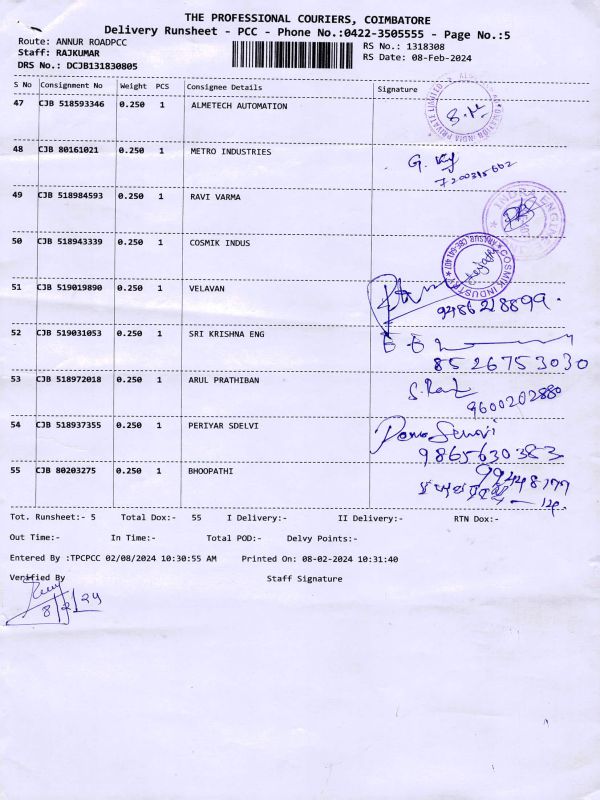 THE PROFESSIONAL COURIERS, COIMBATORE
Delivery Runsheet - PCC - Phone No.:0422-3505555 - Page No.:5
Route: ANNUR ROADPCC RS No.: 1318308
Staff: RAJKUMAR RS Date: 08-Feb-2024
DRS No.: DCJB131830805
S No Consignment No Weight PCS Consignee Details Signature
47 CJB 518593346 0.250 1 ALMETECH AUTOMATION
48 CJB 80161021 0.250 1 METRO INDUSTRIES
49 CJB 518984593 0.250 1 RAVI VARMA
50 CJB 518943339 0.250 1 COSMIK INDUS
COSMIK INDUSTRI
51 CJB 519019890 0.250 1 VELAVAN
9486218899.
52 CJB 519031053 0.250 1 SRI KRISHNA ENG
8526753030
53 CJB 518972018 0.250 1 ARUL PRATHIBAN
9600202880
54 CJB 518937355 0.250 1 PERIYAR SDELVI
9865630383
55 CJB 80203275 0.250 1 BHOOPATHI
Tot. Runsheet:- 5 Total Dox:- 55 I Delivery:- II Delivery:- RTN Dox:-
Out Time:- In Time:- Total POD:- Delvy Points:-
Entered By :TPCPCC 02/08/2024 10:30:55 AM Printed On: 08-02-2024 10:31:40
Verified By Staff Signature
8/2/24